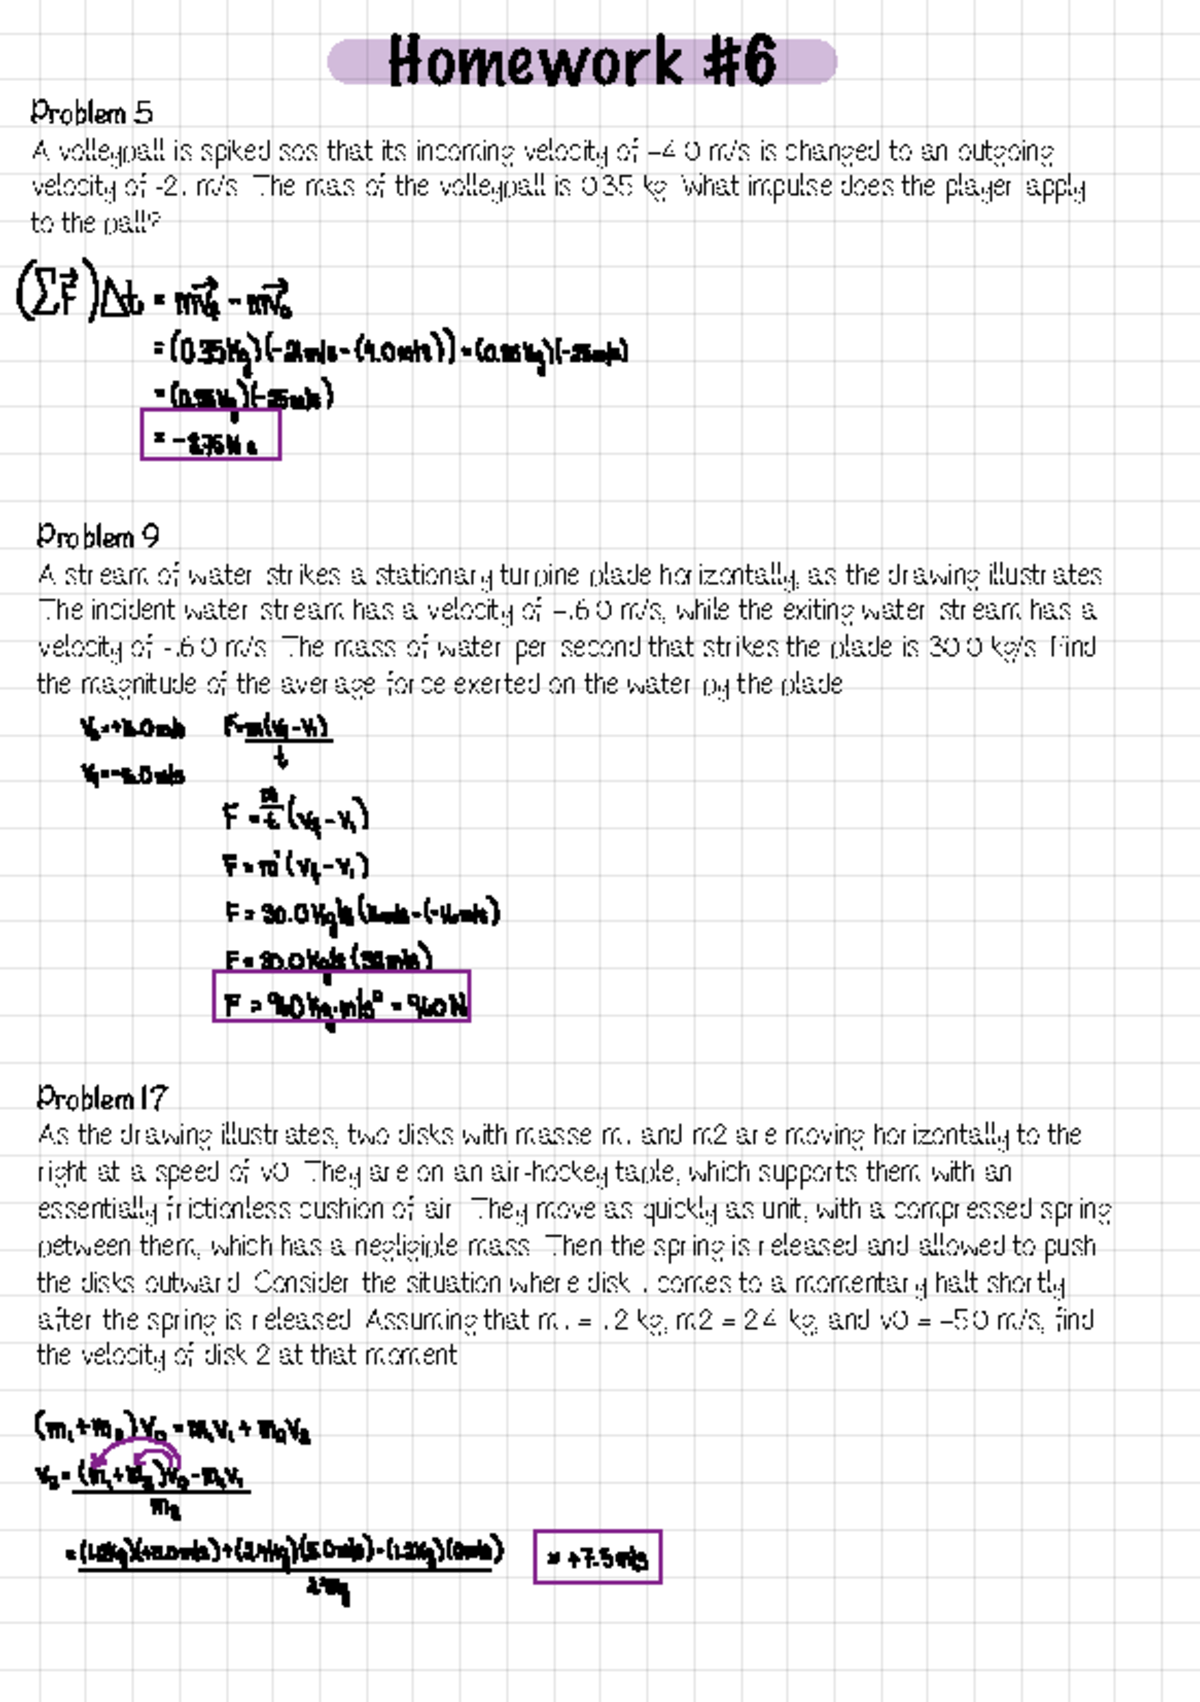 Homework #6
Problem 5
A volleyball is spiked sos that its incoming velocity of -4 0 m/s is changed to an outgoing
velocity of -2. m/s The mas of the volleyball is 0 35 kg What impulse does the player apply
to the ball?
(ΣF⃗)Δt = mv⃗f - mv⃗o
Problem 9
A stream of water strikes a stationary turbine blade horizontally, as the drawing illustrates
The incident water stream has a velocity of -.6 0 m/s, while the exiting water stream has a
velocity of -.6 0 m/s The mass of water per second that strikes the blade is 30 0 kg/s Find
the magnitude of the average force exerted on the water by the blade
F = m(vf - v₁)
t
F = m/t (vf - v₁)
F = m (vf - v₁)
F = 30.0 kg/s
F = 30.0 kg/s (32 m/s)
F = 960 kg·m/s² = 960 N
Problem 17
As the drawing illustrates, two disks with masse m. and m2 are moving horizontally to the
right at a speed of v0 They are on an air-hockey table, which supports them with an
essentially frictionless cushion of air They move as quickly as unit, with a compressed spring
between them, which has a negligible mass Then the spring is released and allowed to push
the disks outward Consider the situation where disk . comes to a momentary halt shortly
after the spring is released Assuming that m. = .2 kg, m2 = 2 4 kg, and v0 = -5 0 m/s, find
the velocity of disk 2 at that moment
(m₁+m₂)v₀ = m₁v₁ + m₂v₂
v₂ = (m₁+m₂)v₀ - m₁v₁
m₂
= +7.5 m/s